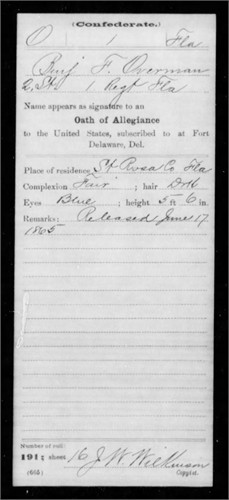 (Confederate.)
O 1 Fla
Benj F. Overman
2. St., 1 Regt Fla
Name appears as signature to an
Oath of Allegiance
to the United States, subscribed to at Fort
Delaware, Del.
Place of residence St Rosa Co Fla
Complexion Fair; hair Drk
Eyes Blue; height 5 ft 6 in.
Remarks: Released June 17
1865
Number of roll:
191; sheet 16 J W Wilkinson
(665) Copyist.